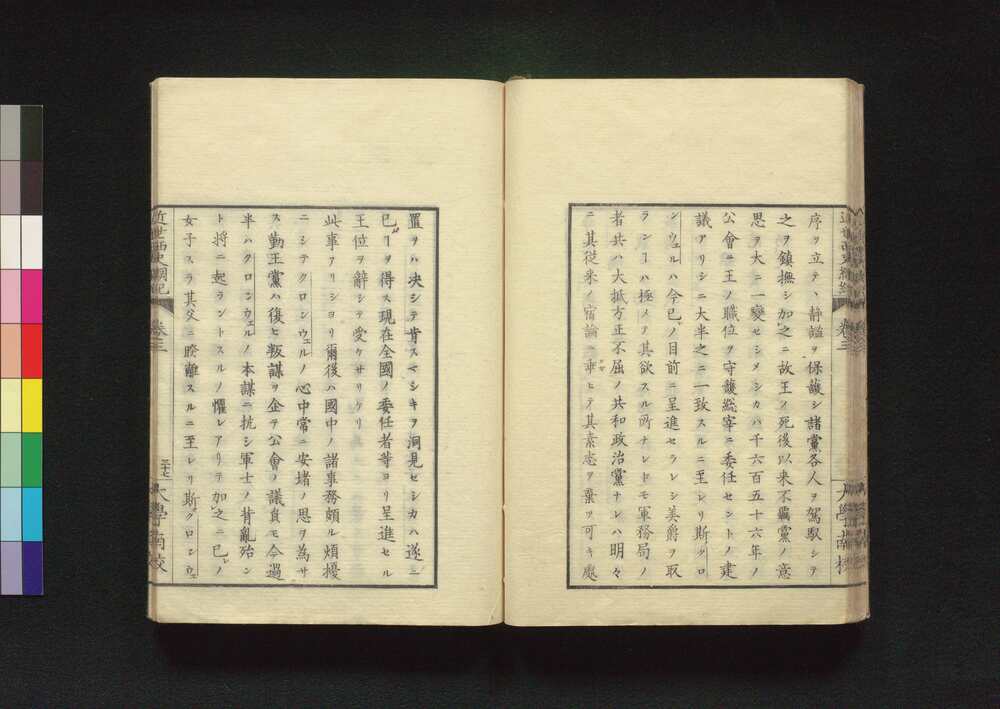 序ヲ立テ、静謐ヲ保護シ諸黨各人ヲ駕馭シテ
之ヲ鎮撫シ加之ニ故王ノ死後以来不羈黨ノ意
思ヲ大ニ一變セシメシカハ千六百五十六年ノ
公會ニ王ノ職位ヲ守護総宰ニ委任セントノ建
議アリシニ大半之ニ一致スルニ至レリ斯クロ
ンウェルハ今已ノ目前ニ呈進セラレシ美爵ヲ取
ランヿハ極メテ其欲スル所ナレトモ軍務局ノ
者共ハ大抵方正不屈ノ共和政治黨ナレハ明々
ニ其従来ノ宿論ニ乖ヒテ其素志ヲ棄ヲ可キ處
置ヲハ决シテ肯スマシキヲ洞見セシカハ遂ニ
已ヿヲ得ス現在全國ノ委任者等ヨリ呈進セル
王位ヲ辭シテ受ケサリケリ
此事アリシヨリ爾後ハ國中ノ諸事務頗ル煩擾
ニシテクロンウェルノ心中常ニ安堵ノ思ヲ為サ
ス勤王黨ハ復ヒ叛謀ヲ企テ公會ノ議負モ今過
半ハクロンウェルノ本謀ニ抗シ軍士ノ背亂殆ン
ト將ニ起ラントスルノ懼レアリテ加之ニ已ノ
女子スラ其父ニ睽離スルニ至レリ斯クロンウェ
近世西史綱紀 卷三
三十七 大學南校